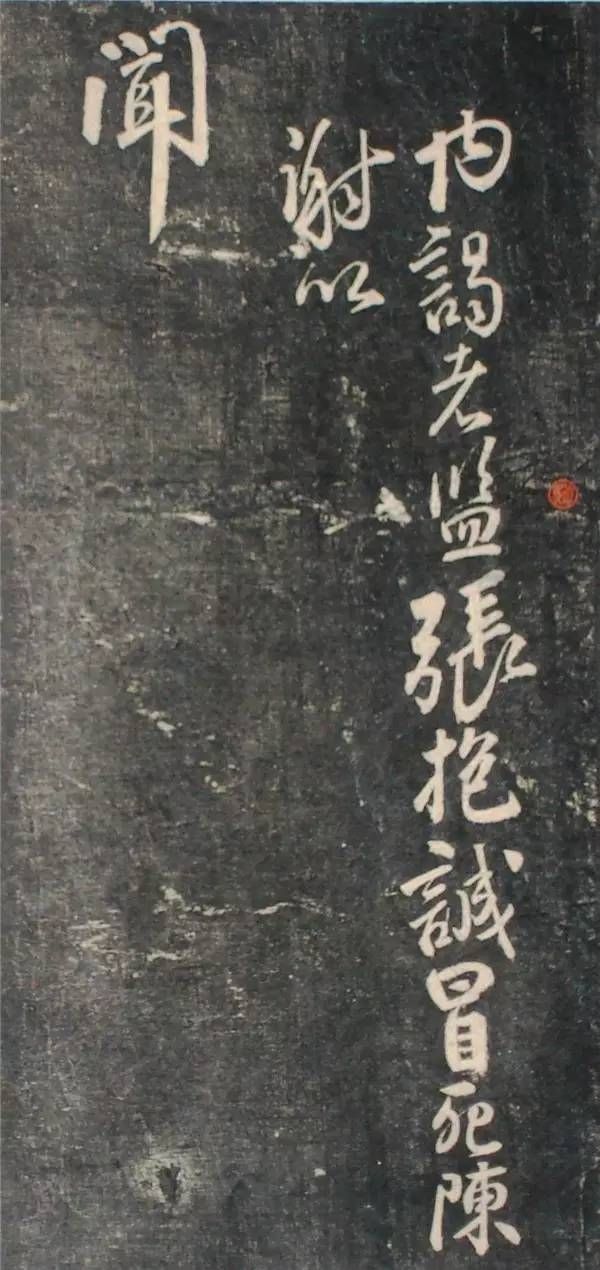 内謁者監張抱誠冒死陳
謝以
聞